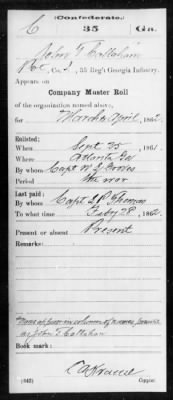 (Confederate.)
C 35 Ga.
John T. Callahan
Pvt, Co. I, 35 Reg't Georgia Infantry.
Appears on
Company Muster Roll
of the organization named above,
for March & April, 1862.
Enlisted:
When Sept 25, 1861.
Where Atlanta Ga
By whom Capt W. J. Groves
Period the war
Last paid:
By whom Capt L. P. Thomas
To what time Feby 28, 1862.
Present or absent Present
Remarks:
Name appears in column of names present
as John T. Callahan
Book mark:
(642)
Copyist.